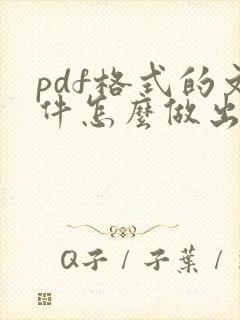 pdf格式的文
件怎麼做出
Q子/子葉/